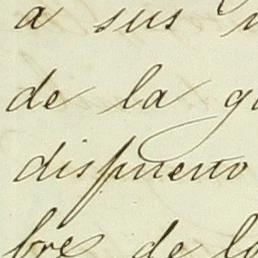 a sus
de la
dispuesto
bre de